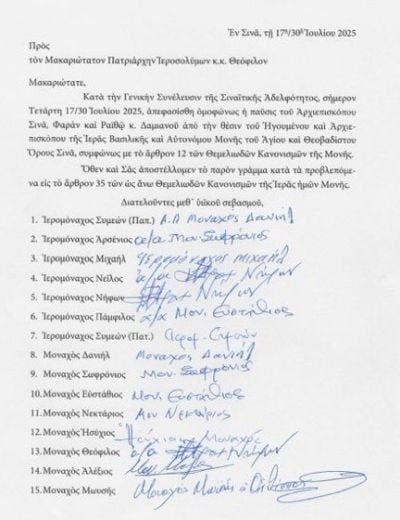 Ἐν Σινᾷ, τῇ 17ῃ/30ῇ Ἰουλίου 2025
Πρὸς
τὸν Μακαριώτατον Πατριάρχην Ἱεροσολύμων κ.κ. Θεόφιλον
Μακαριώτατε,
Κατὰ τὴν Γενικὴν Συνέλευσιν τῆς Σιναϊτικῆς Ἀδελφότητος, σήμερον
Τετάρτη 17/30 Ἰουλίου 2025, ἀπεφασίσθη ὁμοφώνως ἡ παῦσις τοῦ Ἀρχιεπισκόπου
Σινᾶ, Φαρὰν καὶ Ραϊθῶ κ. Δαμιανοῦ ἀπὸ τὴν θέσιν τοῦ Ἡγουμένου καὶ Ἀρχιε-
πισκόπου τῆς Ἱερᾶς Βασιλικῆς καὶ Αὐτονόμου Μονῆς τοῦ Ἁγίου καὶ Θεοβαδίστου
Ὄρους Σινᾶ, συμφώνως με τὸ ἄρθρον 12 τῶν Θεμελιωδῶν Κανονισμῶν τῆς Μονῆς.
Ὅθεν καὶ Σᾶς ἀποστέλλομεν τὸ παρὸν γράμμα κατὰ τὰ προβλεπόμε-
να εἰς τὸ ἄρθρον 35 τῶν ὡς ἄνω Θεμελιωδῶν Κανονισμῶν τῆς Ἱερᾶς ἡμῶν Μονῆς.
Διατελοῦντες μεθ᾽ ὑϊκοῦ σεβασμοῦ,
1. Ἱερομόναχος Συμεών (Παπ.) Α.Α Μοναχὸς Δανιήλ
2. Ἱερομόναχος Ἀρσένιος α/α Μον. Σωφρόνιος
3. Ἱερομόναχος Μιχαήλ Ἱερομόναχος Μιχαήλ
4. Ἱερομόναχος Νεῖλος α/α Νήφων
5. Ἱερομόναχος Νήφων Νήφων
6. Ἱερομόναχος Πάμφιλος α/α Μον. Εὐστάθιος
7. Ἱερομόναχος Συμεών (Πατ.) Ἱερομ. Συμεών
8. Μοναχὸς Δανιήλ Μοναχὸς Δανιήλ
9. Μοναχὸς Σωφρόνιος Μον. Σωφρόνιος
10. Μοναχὸς Εὐστάθιος Μον. Εὐστάθιος
11. Μοναχὸς Νεκτάριος Μον Νεκτάριος
12. Μοναχὸς Ἡσύχιος Ἡσύχιος Μοναχὸς
13. Μοναχὸς Θεόφιλος α/α Νήφων
14. Μοναχὸς Ἀλέξιος
15. Μοναχὸς Μωυσῆς Μοναχὸς Μωϋσῆς ὁ